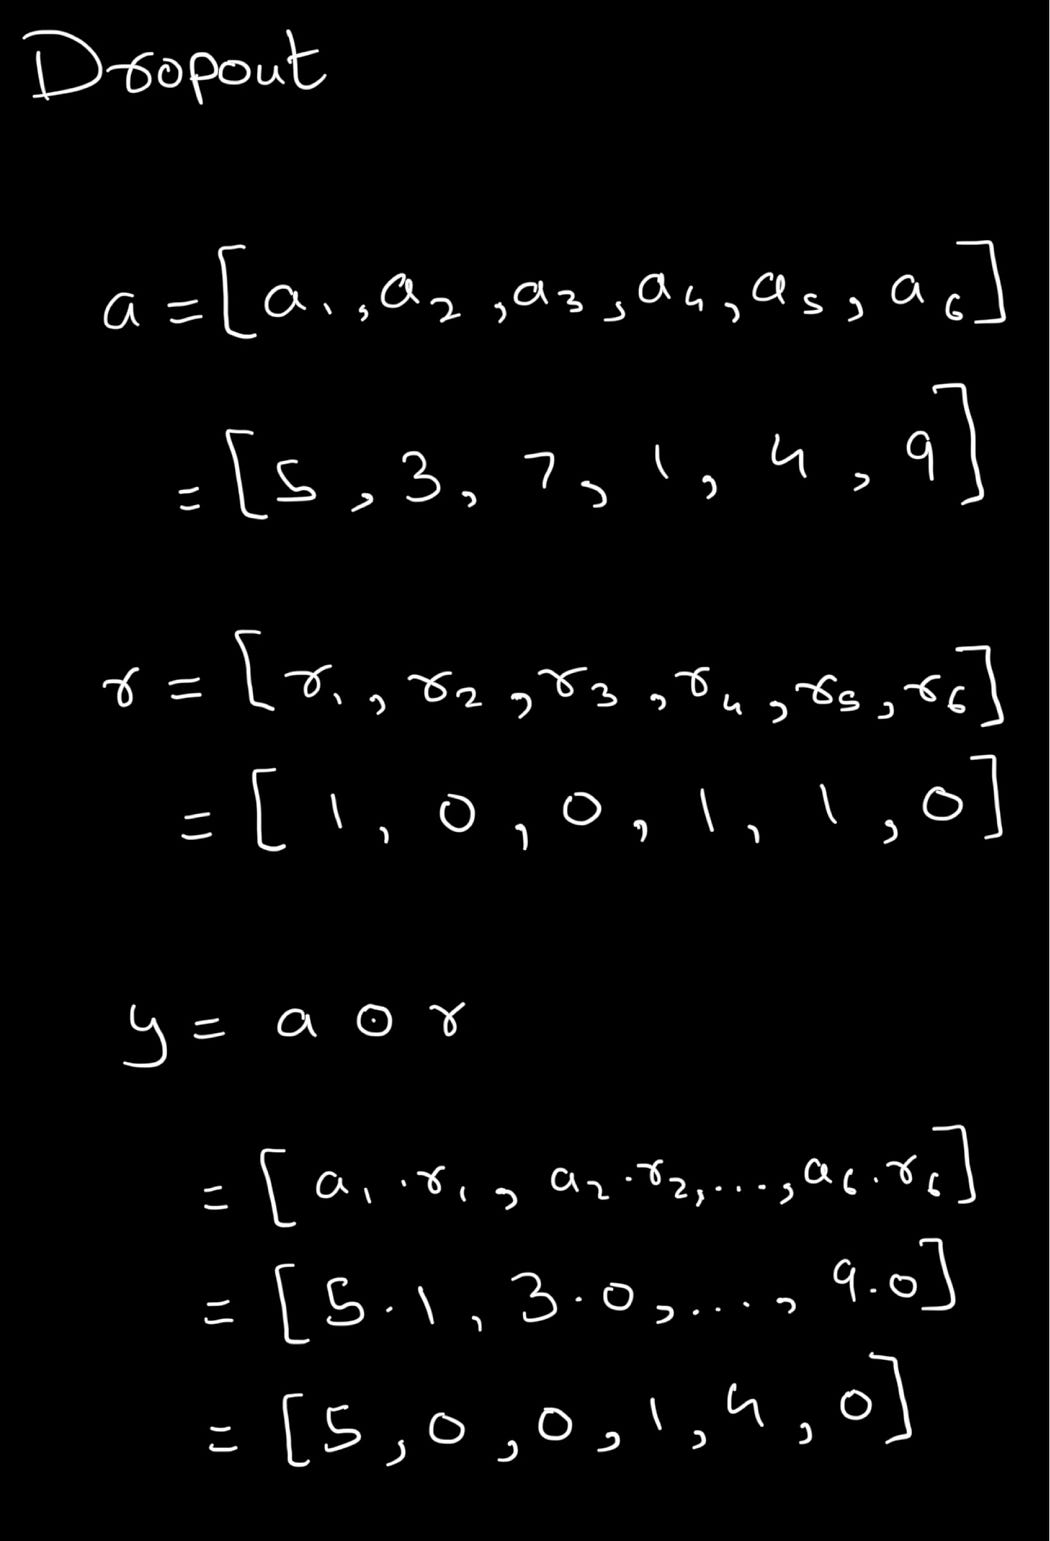 Dropout
a = [a₁, a₂, a₃, a₄, a₅, a₆]
= [5, 3, 7, 1, 4, 9]
r = [r₁, r₂, r₃, r₄, r₅, r₆]
= [1, 0, 0, 1, 1, 0]
y = a ⊙ r
= [a₁·r₁, a₂·r₂, ..., a₆·r₆]
= [5·1, 3·0, ..., 9·0]
= [5, 0, 0, 1, 4, 0]